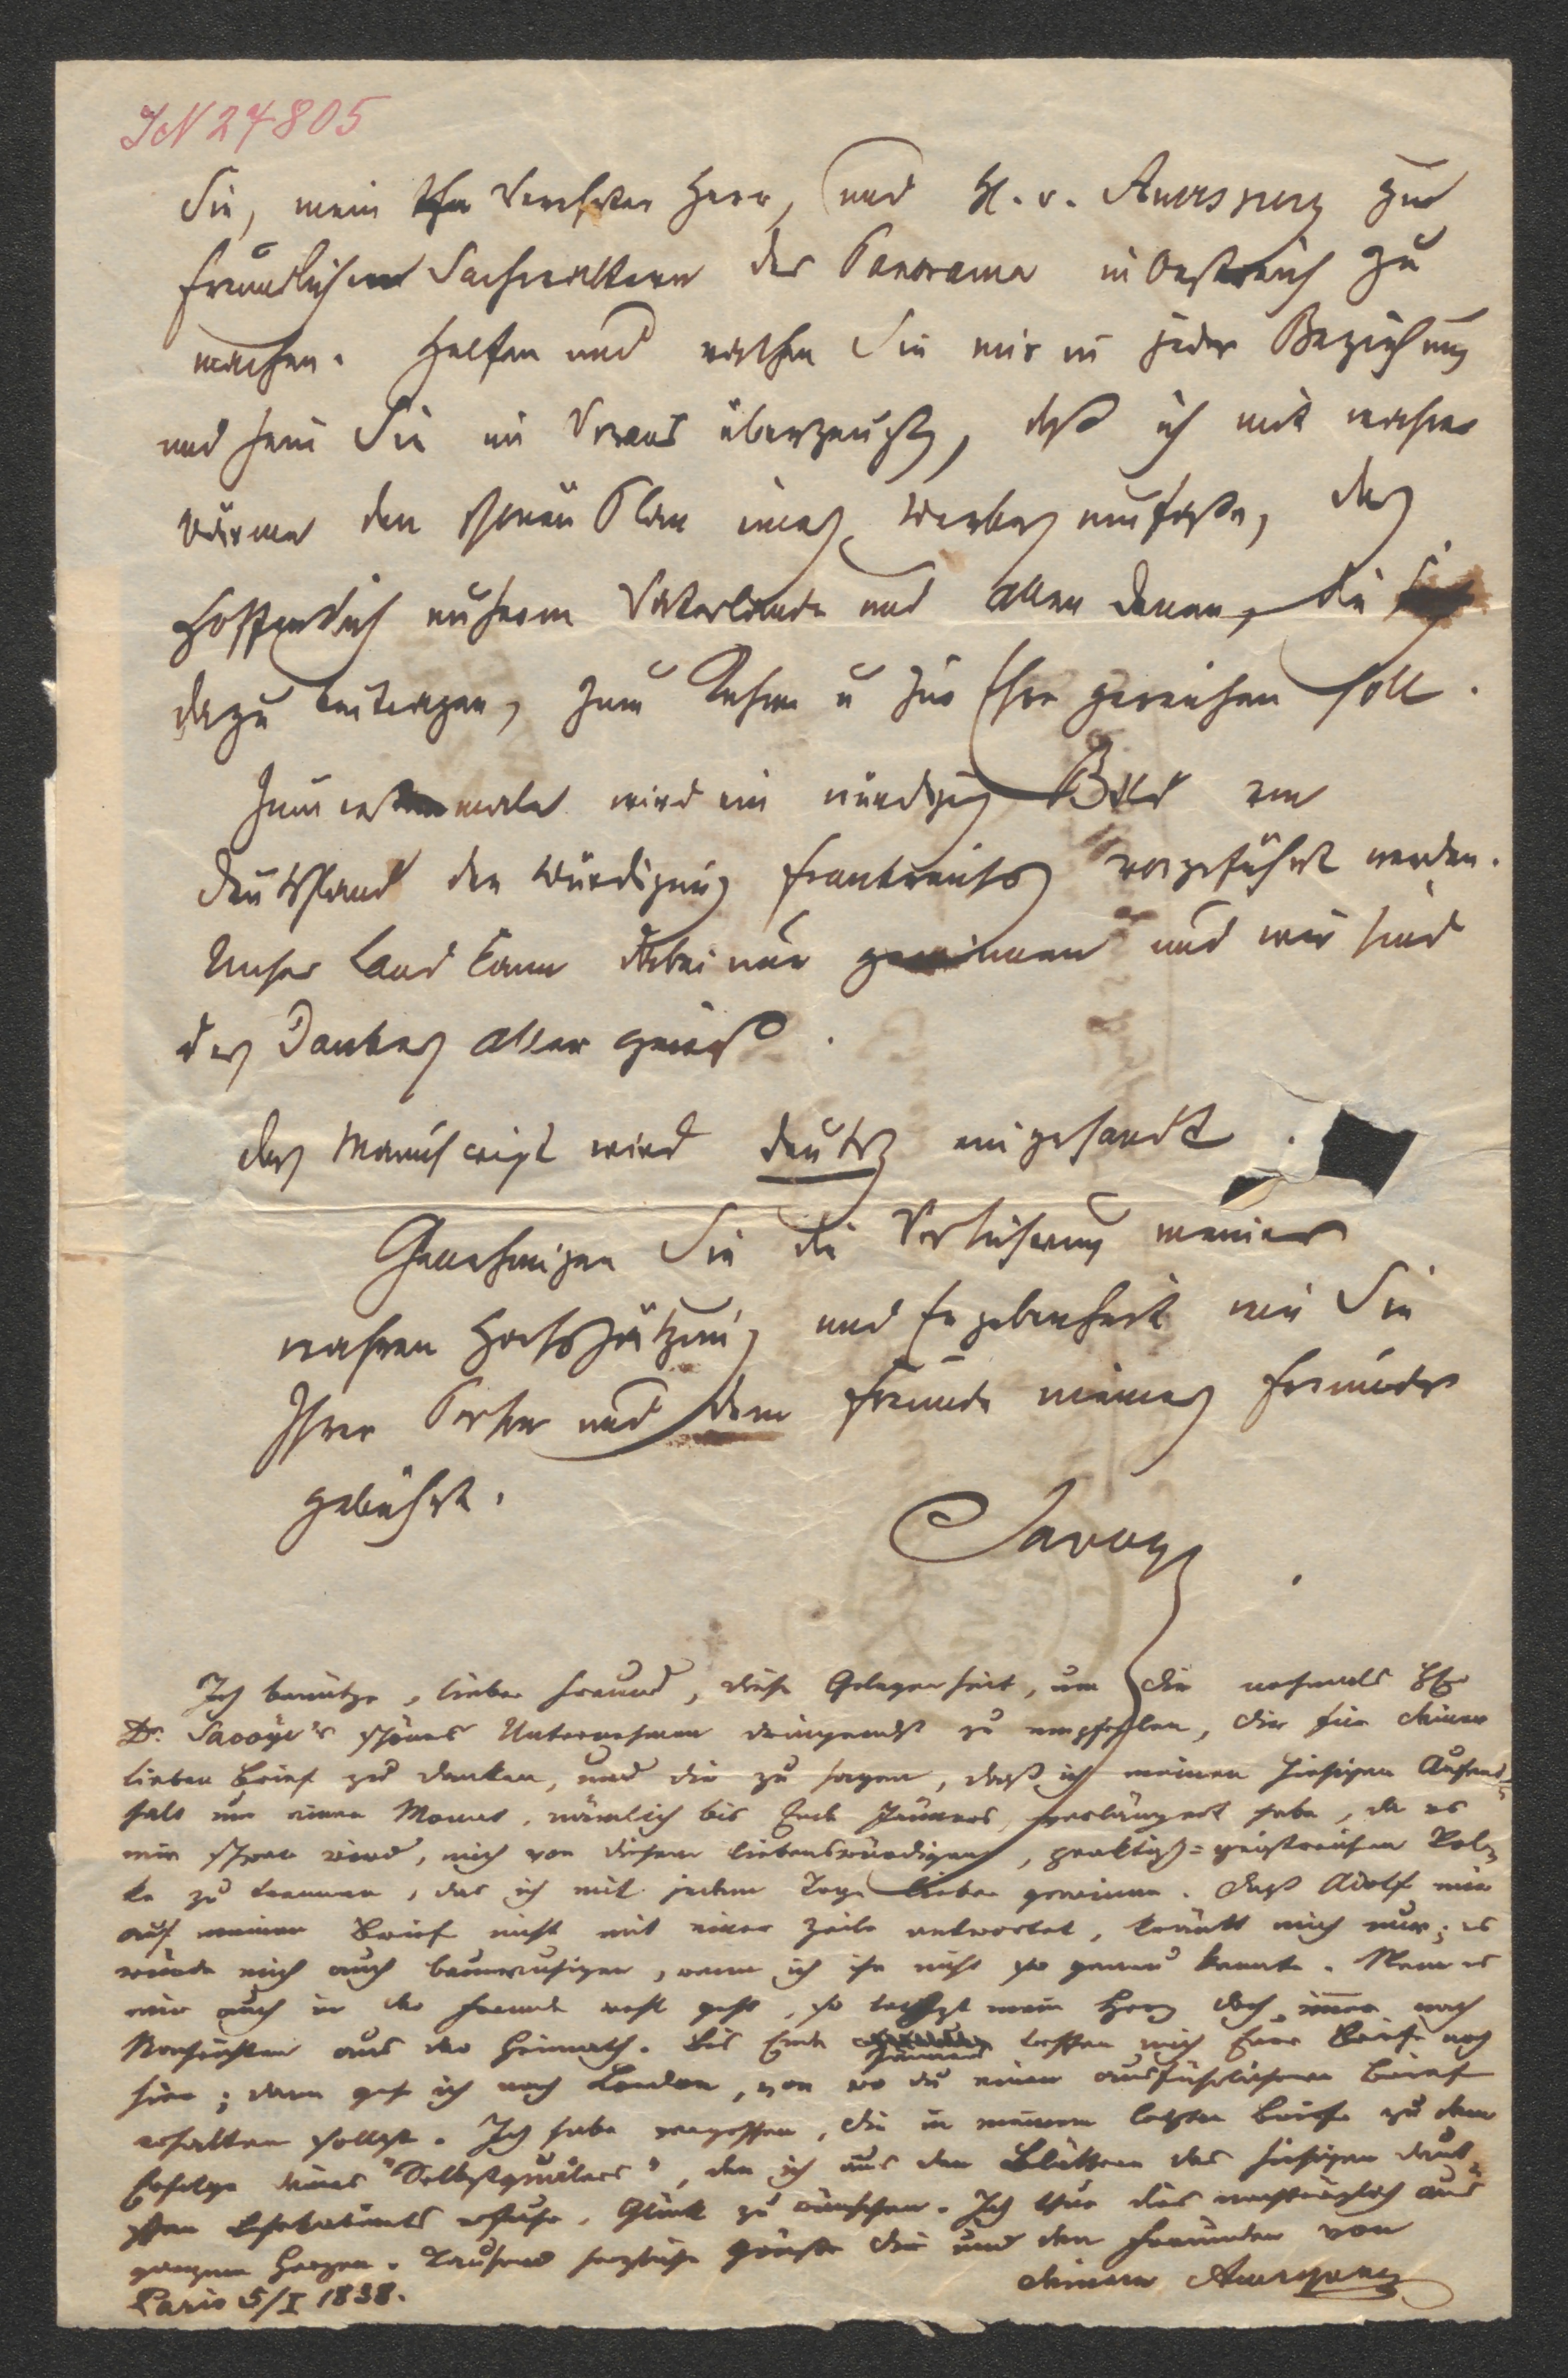 IN 27805
Sie, mein verehrter Herr, und H. v. Auersperg zu
freundlichen Sachwaltern des Panorama in Oestreich zu
machen. Helfen und rathen Sie mir in jeder Beziehung
und sein Sie im Voraus überzeugt, daß ich mit wahrer
Wärme den schönen Plan eines Werkes umfaße, das
hoffentlich unserm Vaterlande und allen denen, die
dazu beitragen, zum Ruhme u zur Ehre gereichen soll.
Zum erstenmale wird ein würdiges Bild von
Deutschland der Würdigung Frankreichs vorgeführt werden.
Unser Land kann dabei nur gewinnen und wir sind
des Dankes aller gewiß.
Das Manuscript wird deutsch eingesandt.
Genehmigen Sie die Versicherung meiner
wahren Hochschätzung und Ergebenheit wie Sie
Ihrer Person und dem Freunde meines Freundes
gebührt.
Savoye
Ich benütze, lieber Freund, diese Gelegenheit, um dir nochmals
Dr. Savoye's schönes Unternehmen dringendst zu empfehlen, dir für deinen
lieben Brief zu danken, und dir zu sagen, daß ich meinen hiesigen Aufent-
halt um einen Monat, nämlich bis Ende Jänners, verlängert habe, da es
mir schwer wird, mich von diesem liebenswürdigen, praktisch-geistreichen Vol-
ke zu trennen, das ich mit jedem Tage lieber gewinne. Daß Adolf mir
auf meinen Brief nicht mit einer Zeile antwortet, kränkt mich nur; es
würde mich auch beunruhigen, wenn ich ihn nicht so genau kennte. Wenn es
mir auch in der Fremde wohl geht, so lechzt mein Herz doch immer nach
Nachrichten aus der Heimath. Bis Ende Jänners treffen mich Eure Briefe noch
hier; dann geh ich nach London, von wo du einen ausführlicheren Brief
erhalten sollst. Ich habe vergessen, dir in meinem letzten Briefe zu dem
Erfolge deines "Selbstquälers", den ich aus den Blättern des hiesigen deut-
schen Lesekabinets erfuhr, Glück zu wünschen. Ich thue dies nachträglich aus
ganzem Herzen. Tausend herzliche Grüße dir und den Freunden von
deinem Auersperg
Paris 5/I 1838.